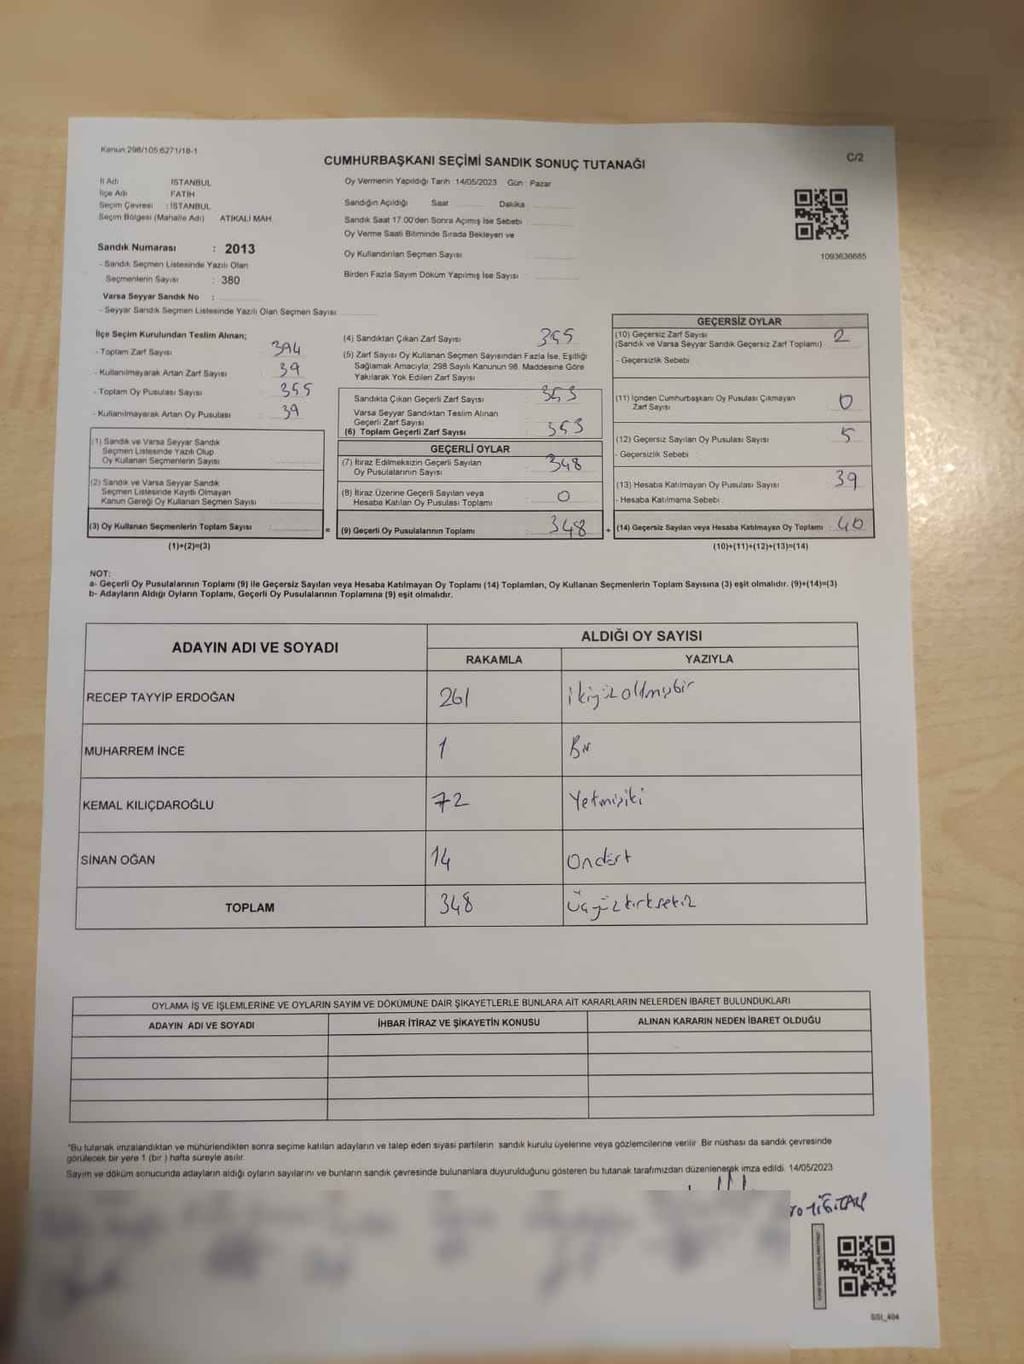 Kanun:298/105.6271/18-1
CUMHURBAŞKANI SEÇİMİ SANDIK SONUÇ TUTANAĞI
C/2
İl Adı : İSTANBUL
İlçe Adı : FATİH
Seçim Çevresi : İSTANBUL
Seçim Bölgesi (Mahalle Adı) ATİKALİ MAH.
Oy Vermenin Yapıldığı Tarih :14/05/2023 Gün : Pazar
Sandığın Açıldığı Saat Dakika
Sandık Saat 17.00'den Sonra Açmış İse Sebebi
Oy Verme Saati Bitiminde Sırada Bekleyen ve
Oy Kullandırılan Seçmen Sayısı
Birden Fazla Sayım Döküm Yapılmış İse Sayısı
1093636685
Sandık Numarası : 2013
- Sandık Seçmen Listesinde Yazılı Olan
Seçmenlerin Sayısı : 380
Varsa Seyyar Sandık No :
- Seyyar Sandık Seçmen Listesinde Yazılı Olan Seçmen Sayısı
İlçe Seçim Kurulundan Teslim Alınan;
- Toplam Zarf Sayısı 394
- Kullanılmayarak Artan Zarf Sayısı 39
- Toplam Oy Pusulası Sayısı 355
- Kullanılmayarak Artan Oy Pusulası 39
(1) Sandık ve Varsa Seyyar Sandık
Seçmen Listesinde Yazılı Olup
Oy Kullanan Seçmenlerin Sayısı
(2) Sandık ve Varsa Seyyar Sandık
Seçmen Listesinde Kaydı Olmayan
Kanun Gereği Oy Kullanan Seçmen Sayısı
(3) Oy Kullanan Seçmenlerin Toplam Sayısı
(1)+(2)=(3)
(4) Sandıktan Çıkan Zarf Sayısı 355
(5) Zarf Sayısı Oy Kullanan Seçmen Sayısından Fazla İse, Eşitliği
Sağlamak Amacıyla; 298 Sayılı Kanunun 98. Maddesine Göre
Yakılarak Yok Edilen Zarf Sayısı
Sandıkta Çıkan Geçerli Zarf Sayısı 353
Varsa Seyyar Sandıktan Teslim Alınan
Geçerli Zarf Sayısı
(6) Toplam Geçerli Zarf Sayısı 353
GEÇERLİ OYLAR
(7) İtiraz Edilmeksizin Geçerli Sayılan
Oy Pusulalarının Sayısı 348
(8) İtiraz Üzerine Geçerli Sayılan veya
Hesaba Katılan Oy Pusulası Toplamı 0
= (9) Geçerli Oy Pusulalarının Toplamı 348
GEÇERSİZ OYLAR
(10) Geçersiz Zarf Sayısı 2
(Sandık ve Varsa Seyyar Sandık Geçersiz Zarf Toplamı)
- Geçersizlik Sebebi
(11) İçinden Cumhurbaşkanı Oy Pusulası Çıkmayan
Zarf Sayısı 0
(12) Geçersiz Sayılan Oy Pusulası Sayısı 5
- Geçersizlik Sebebi
(13) Hesaba Katılmayan Oy Pusulası Sayısı 39
- Hesaba Katılmama Sebebi
+ (14) Geçersiz Sayılan veya Hesaba Katılmayan Oy Toplamı 40
(10)+(11)+(12)+(13)=(14)
NOT:
a- Geçerli Oy Pusulalarının Toplamı (9) ile Geçersiz Sayılan veya Hesaba Katılmayan Oy Toplamı (14) Toplamları, Oy Kullanan Seçmenlerin Toplam Sayısına (3) eşit olmalıdır. (9)+(14)=(3)
b- Adayların Aldığı Oyların Toplamı, Geçerli Oy Pusulalarının Toplamına (9) eşit olmalıdır.
ADAYIN ADI VE SOYADI
ALDIĞI OY SAYISI
RAKAMLA YAZIYLA
RECEP TAYYİP ERDOĞAN 261 ikiyüzaltmışbir
MUHARREM İNCE 1 Bir
KEMAL KILIÇDAROĞLU 72 Yetmişiki
SİNAN OĞAN 14 Ondört
TOPLAM 348 Üçyüzkırksekiz
OYLAMA İŞ VE İŞLEMLERİNE VE OYLARIN SAYIM VE DÖKÜMÜNE DAİR ŞİKAYETLERLE BUNLARA AİT KARARLARIN NELERDEN İBARET BULUNDUKLARI
ADAYIN ADI VE SOYADI İHBAR İTİRAZ VE ŞİKAYETİN KONUSU ALINAN KARARIN NEDEN İBARET OLDUĞU
"Bu tutanak imzalandıktan ve mühürlendikten sonra seçime katılan adayların ve talep eden siyasi partilerin sandık kurulu üyelerine veya gözlemcilerine verilir. Bir nüshası da sandık çevresinde
görülecek bir yere 1 (bir ) hafta süreyle asılır.
Sayım ve döküm sonucunda adayların aldığı oyların sayılarını ve bunların sandık çevresinde bulunanlara duyurulduğunu gösteren bu tutanak tarafımızdan düzenlenerek imza edildi. 14/05/2023
SSI_404